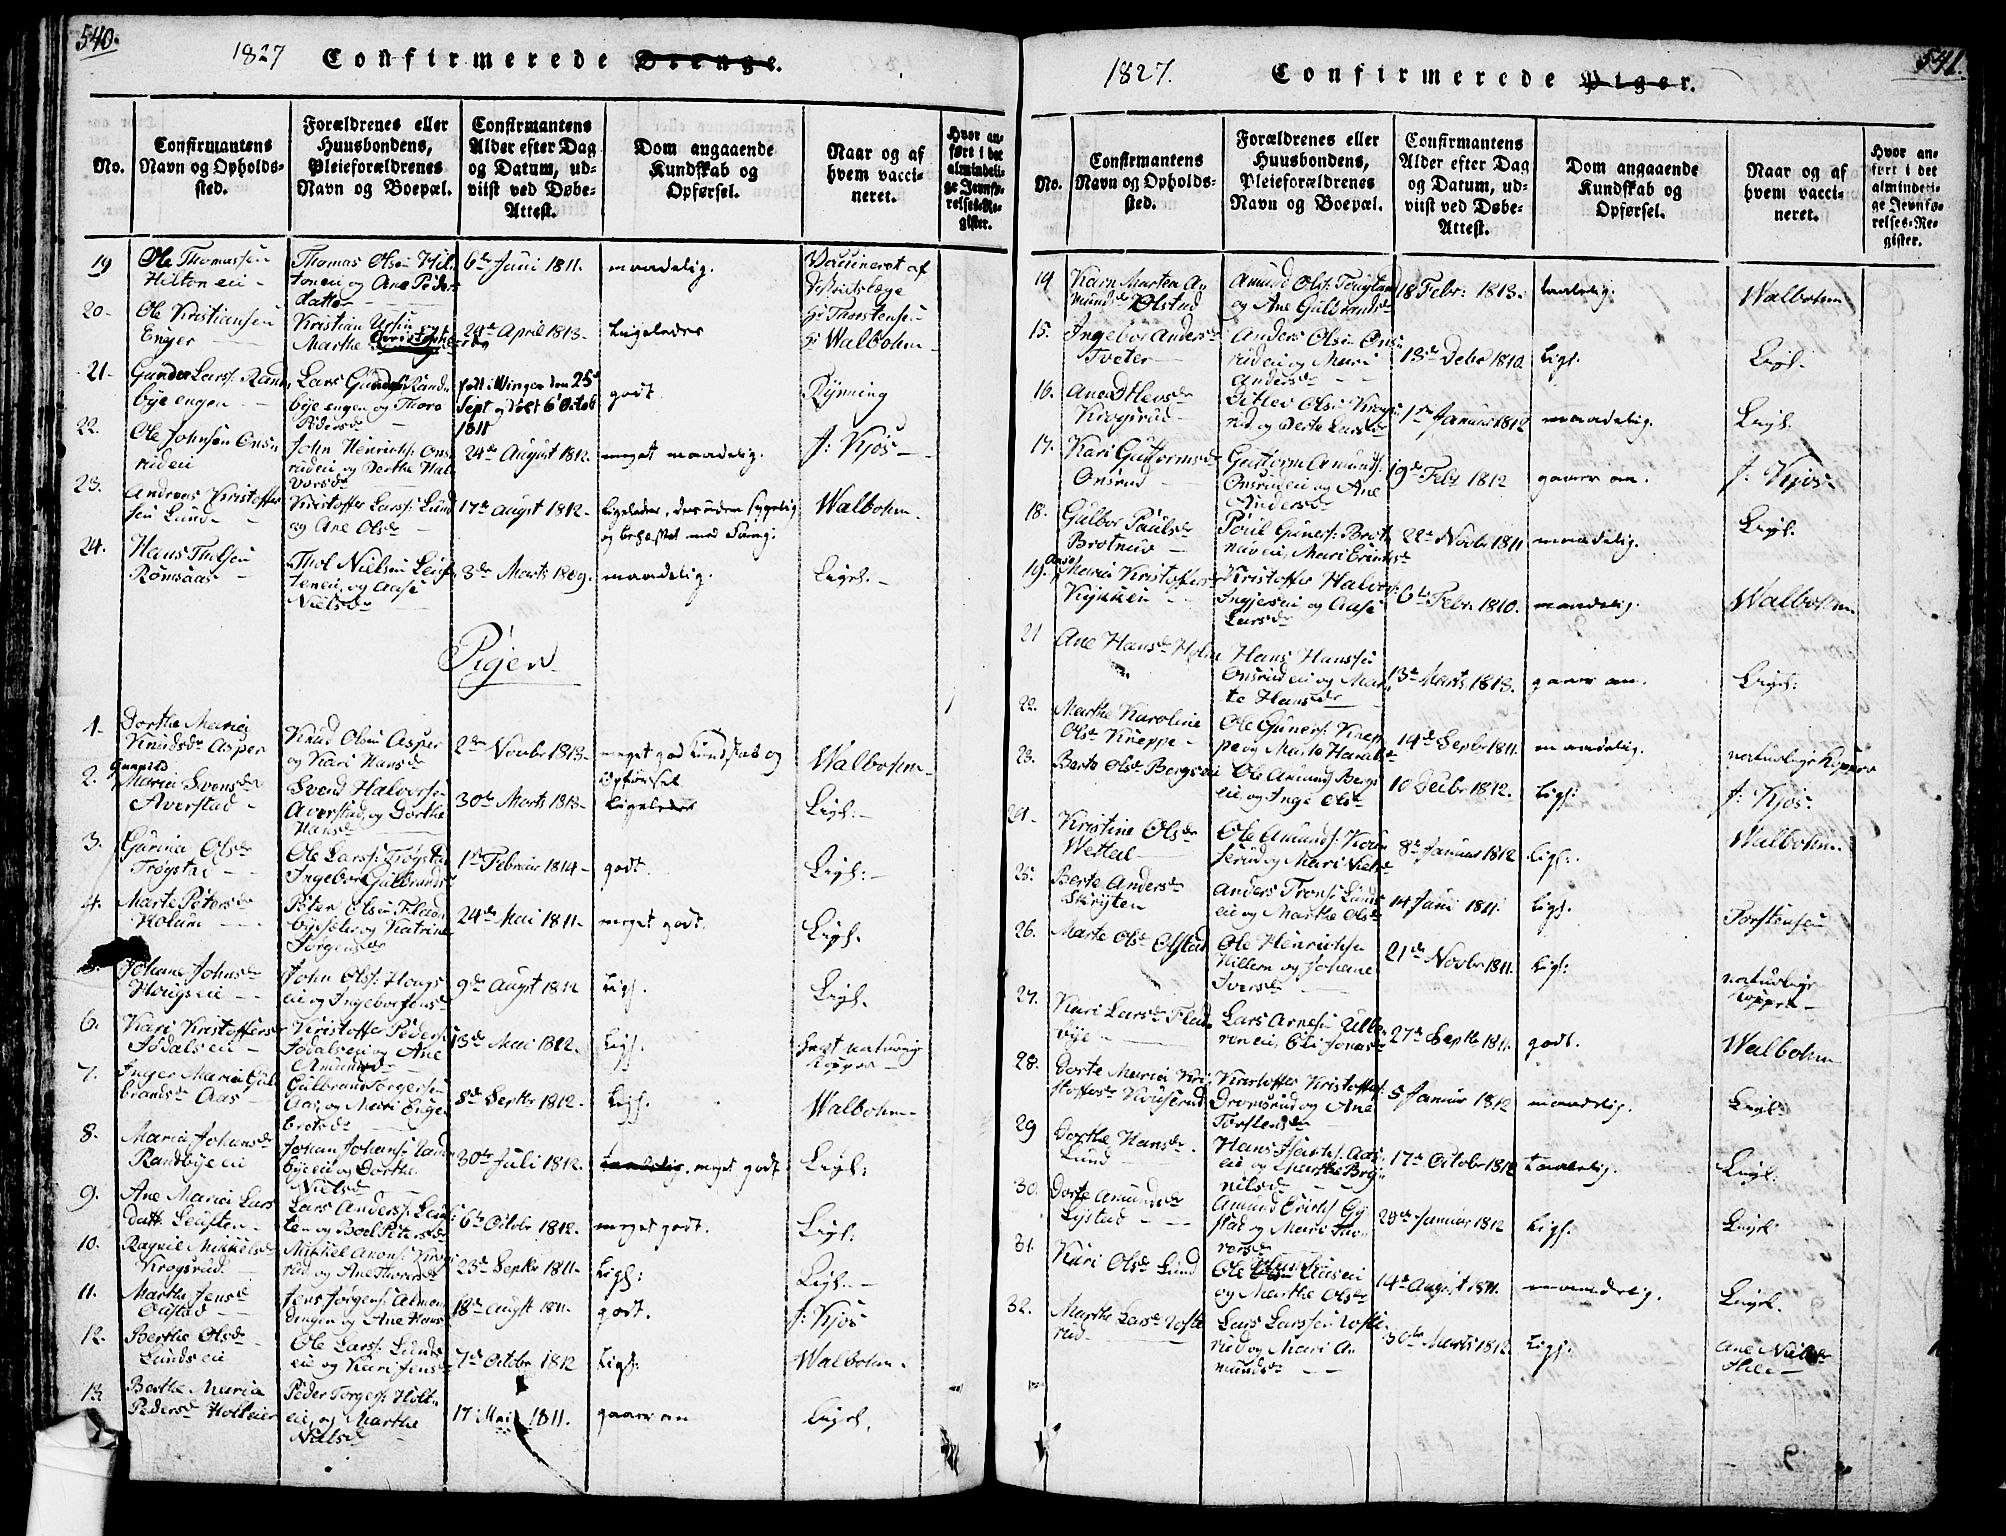 540.
1827 Confirmerede Drenge.
No.
Confirmantens
Navn og Opholds-
sted.
Forældrenes eller
Huusbondens,
Pleieforældrenes
Navn og Boepæl.
Confirmantens
Alder efter Dag
og Datum, ud-
viist ved Døbe-
Attest.
Dom angaaende
Kundskab og
Opførsel.
Naar og af
hvem vacci-
neret.
Hvor an-
ført i det
almindeli-
ge Jevnfø-
relses-Re-
gister.
19
Ole Thomassen
Hilton eii
Thomas Olsen Hil-
toneii og Ane Peders
datter
6te Juni 1811.
maadelig.
Vaccineret af
20
Ole Kristiansen
Enger
Kristian
Marthe
24de April 1813
Ligeledes
Hr Thorstensen
Hr Walbohm
21
Gunder Larss. Rand
bye engen
Lars Rand
bye engen og Thore
Pedersdr
født i Winger den 25de
Sept og døbt 6te Octob
1811
godt.
Rynning
22.
Ole Johnsen Onsru
rudeii
John Henrichs. Ons
rudeii og Berthe Hal
vorsdr
24de August 1812.
meget maadelig.
J: Kjøs
23.
Andreas Kristoffer
sen Lund
Kristoffer Larss. Lund
og Ane Olsdr
17de Augst 1812
Ligeledes, desuden sygelig
og behæftet med
Walbohm
24.
Hans Tholsen
Rømsaas
Thol Nielsen Leuf
teneii, og Aase
Nielsdr
3de Marts 1809.
maadelig.
Ligel.
Piger
1
Dorthe Maria
Knudsdr Asper
Knud Olsen Asper
og Kari Hansdr
2den Novbr 1813.
meget god Kundskab og
Opførsel
Walbohm
2.
Gunhild
Maria Svensdr
Averstad
Svend Halvorsen
Averstad, og Dorthe
Hansdr
30te Marts 1813
Ligeledes
Ligl.
3.
Gurina Olsdr
Trøgstad
Ole Larss. Trøgsta
Ingebor Gulbrands
1ste Februar 1814
godt.
Ligl:
4.
Marte Petersdr
Holum
Peter Olsen Flad
byesæter og Katrine
Jørgensdr
24de Mai 1811.
meget godt.
Ligl.
5.
Johane Johnsdr
Hougseii
John Olss. Hougs
eii og Ingebor Jensdr
9de Augst 1812
Ligs.
Ligl.
6.
Kari Kristoffersdr
Jødalseii
Kristoffer Peders
Jødalseii og Ane
Amundsdr
13de Mai 1812.
Ligs.
havt naturlige
Kopper
7.
Inger Maria Gul
brandsdr Aas
Gulbrand Torgersen
Aas og Mari Inge
bretsdr
8de Septbr 1812
Ligs.
Walbohm
8.
Maria Johansdr
Randbyeeii
Johan Johans. Rand
byeeii og Dorthe
Nielsdr
30te Juli 1812.
taalelig, meget godt
Ligl:
9.
Ane Maria Lars
datt. Leuften
Lars Anderss. Leuf
ten og Boel Petersdr
6te Octobr 1812.
meget godt.
Ligl:
10.
Ragnil Mikkelsdr
Krogsrud
Mikkel Krogs
rud og Ane Thorsdr
23de Septbr 1811
Ligs:
Ligl.
11.
Marthe Jensdr
Ølstad
Jens Jørgens. Almen
dingen og Ane Hans
18de Augst 1811.
godt.
J: Kjøs
12.
Berthe Olsdr
Lundseii
Ole Larss. Lunds
eii og Kari Jensdr
7de Octobr 1812
Ligs:
Walbohm.
13
Berthe Maria
Pedersdr Holteiier
Peder Torgers. Holt
eii, og Marthe
Nielsdr
17 Mai 1811.
gaaer an
Ligel.
541.
1827. Confirmerede Piger.
No.
Confirmantens
Navn og Opholds-
sted.
Forældrenes eller
Huusbondens,
Pleieforældrenes
Navn og Boepæl.
Confirmantens
Alder efter Dag
og Datum, ud-
viist ved Døbe-
Attest.
Dom angaaende
Kundskab og
Opførsel.
Naar og af
hvem vacci-
neret.
Hvor an-
ført i det
almindeli-
ge Jevnfø-
relses-Re-
gister.
14
Karn Marten A
mundsdr Ølstad
Amund Olss.
og Ane Gulbrandsdr
18 Febr: 1813.
taalelig.
Walbohm
15.
Ingebor Andersdr
Tveter
Anders Olsen Ons
rudeii og Mari
Andersdr
13de Debr 1810.
Ligs.
Ligl.
16.
Ane Ditlevsdr
Krogsrud
Ditlev Olsen Krogs
rud og Berte Larsdr
1ste Januar 1812
maadelig.
Ligl.
17.
Kari Guttormsdr
Onsrud
Guttorm Amunds.
Onsrudeii og Ane
Andersdr
19de Febr 1812
gaaer an.
J: Kjøs
18.
Gulbor Paulsdr
Brotnuv
Poul Guners. Brot
nuveii, Mari Eriksdr
22de Novbr 1811
maadelig.
Ligl.
19.
Anne
Maria Kristoffersdr
Kristoffer Halvors.
og Aase
Larsdr
6te Febr. 1810.
maadelig.
Walbohm
21
Ane Hansdr Holm
Hans Hanssen
Onsrudeii og Mar
te Hansdr
13de Marts 1813.
gaaer an.
Ligl:
22.
Marthe Karoline
Olsdr Kneppe
Ole Guners. Knep
pe og Marte Haralsdr
14de Septbr 1811.
maadelig.
naturlige Kopper
23.
Berte Olsdr Bergseii
Ole Amund. Bergs
eii og Inge Olsdr
10 Decbr 1812.
Ligs:
J: Kjøs
24
Kristine Olsdr
Wettal
Ole Amunds.
serud og Mari Nielsdr
8de Januar 1812
Ligs:
Walbohm
25.
Berte Andersdr
Skrijten
Anders Trons. Lunds
eii og Marthe Olsdr
14 Juni 1811.
Ligs.
Torstensen
26.
Marte Olsdr Ølstad
Ole Henrichsen
Hillern og Johane
Iversdr
21de Novbr 1811.
Ligs:
naturlige
Kopper
27.
Kari Larsdr Flad
bye
Lars Arnesen Ulle
reneii, Eli Jonasdr
27de Septbr 1811.
godt.
Walbohm
28.
Dorte Maria Kri
stoffersdr Kouserud
Kristoffer Kristoffers.
Dromsrud og Ane
Torstensdr
5 Januar 1812
maadelig.
Ligl:
29
Dorthe Hansdr
Lund
Hans Aas
eii og Marthe Bry
nilsdr
17de October 1812
taalelig.
Ligl:
30.
Dorte Amundsdr
Gystad
Amund Erichs. Gy
stad og Mari Tho
rersdr
28de Januar 1812
Ligs:
Ligel
31.
Kari Olsdr Lund
Ole Aaseii
og Marthe Olsdr
14de August 1811.
maadelig.
Ligel.
32.
Marthe Larsdr Ulve
rud
Lars Larssen Ulve
rud og Mari A
mundsdr
30te Marts 1812
Ligs:
Ane Nielsdr